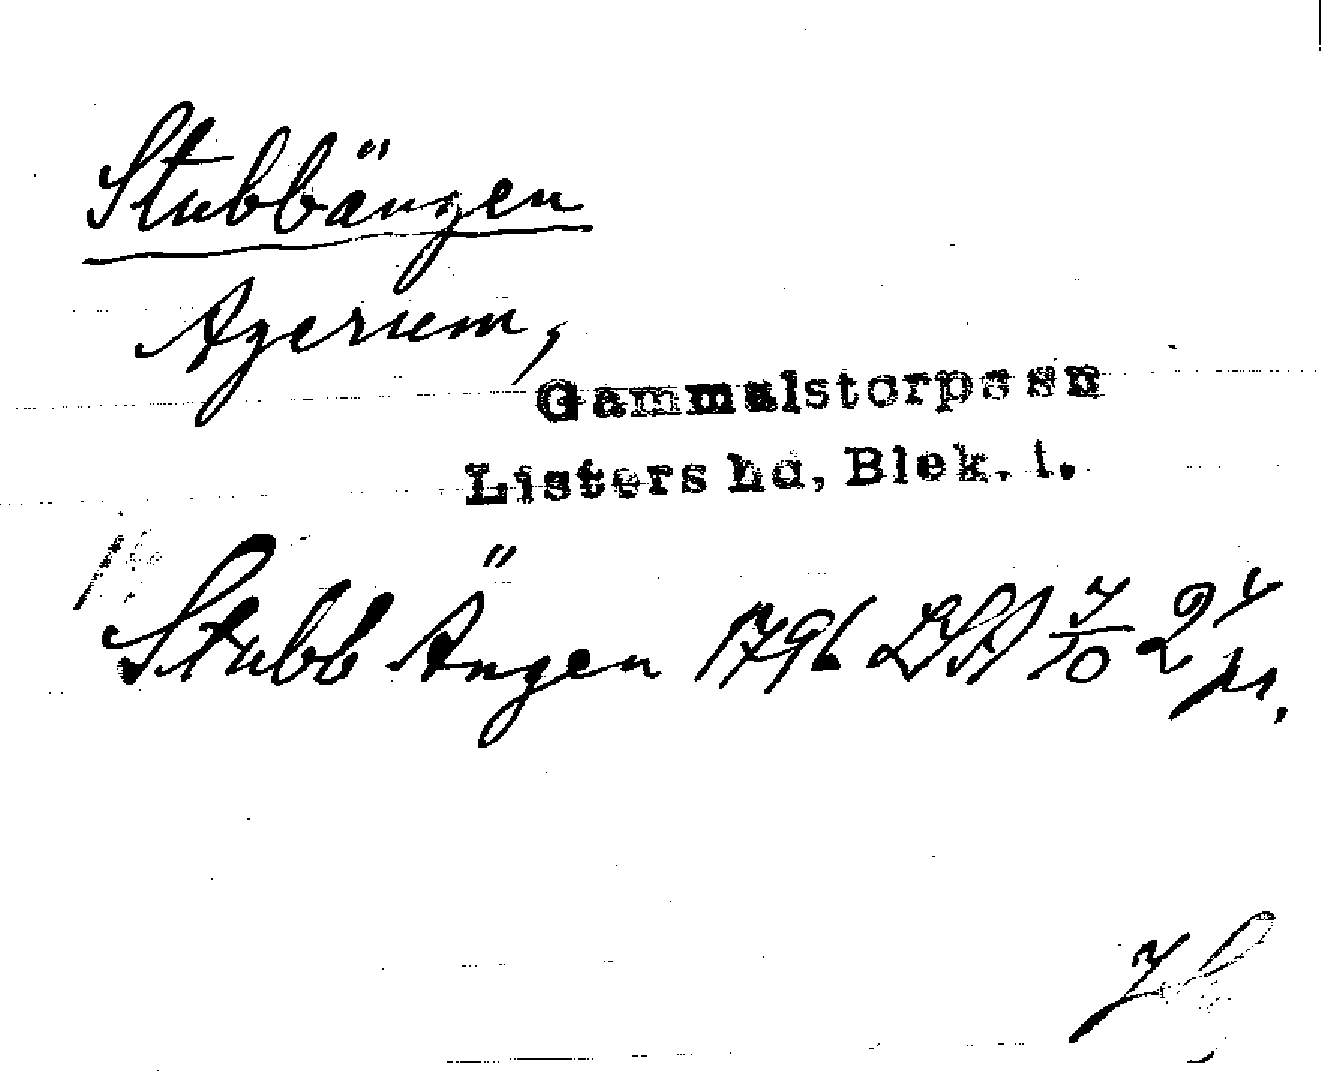 Stubbängen
Agerum,
Gammalstorps sn
Listers hd, Blek. l.
Stubb Ängen 1796 LSA 7/10 2